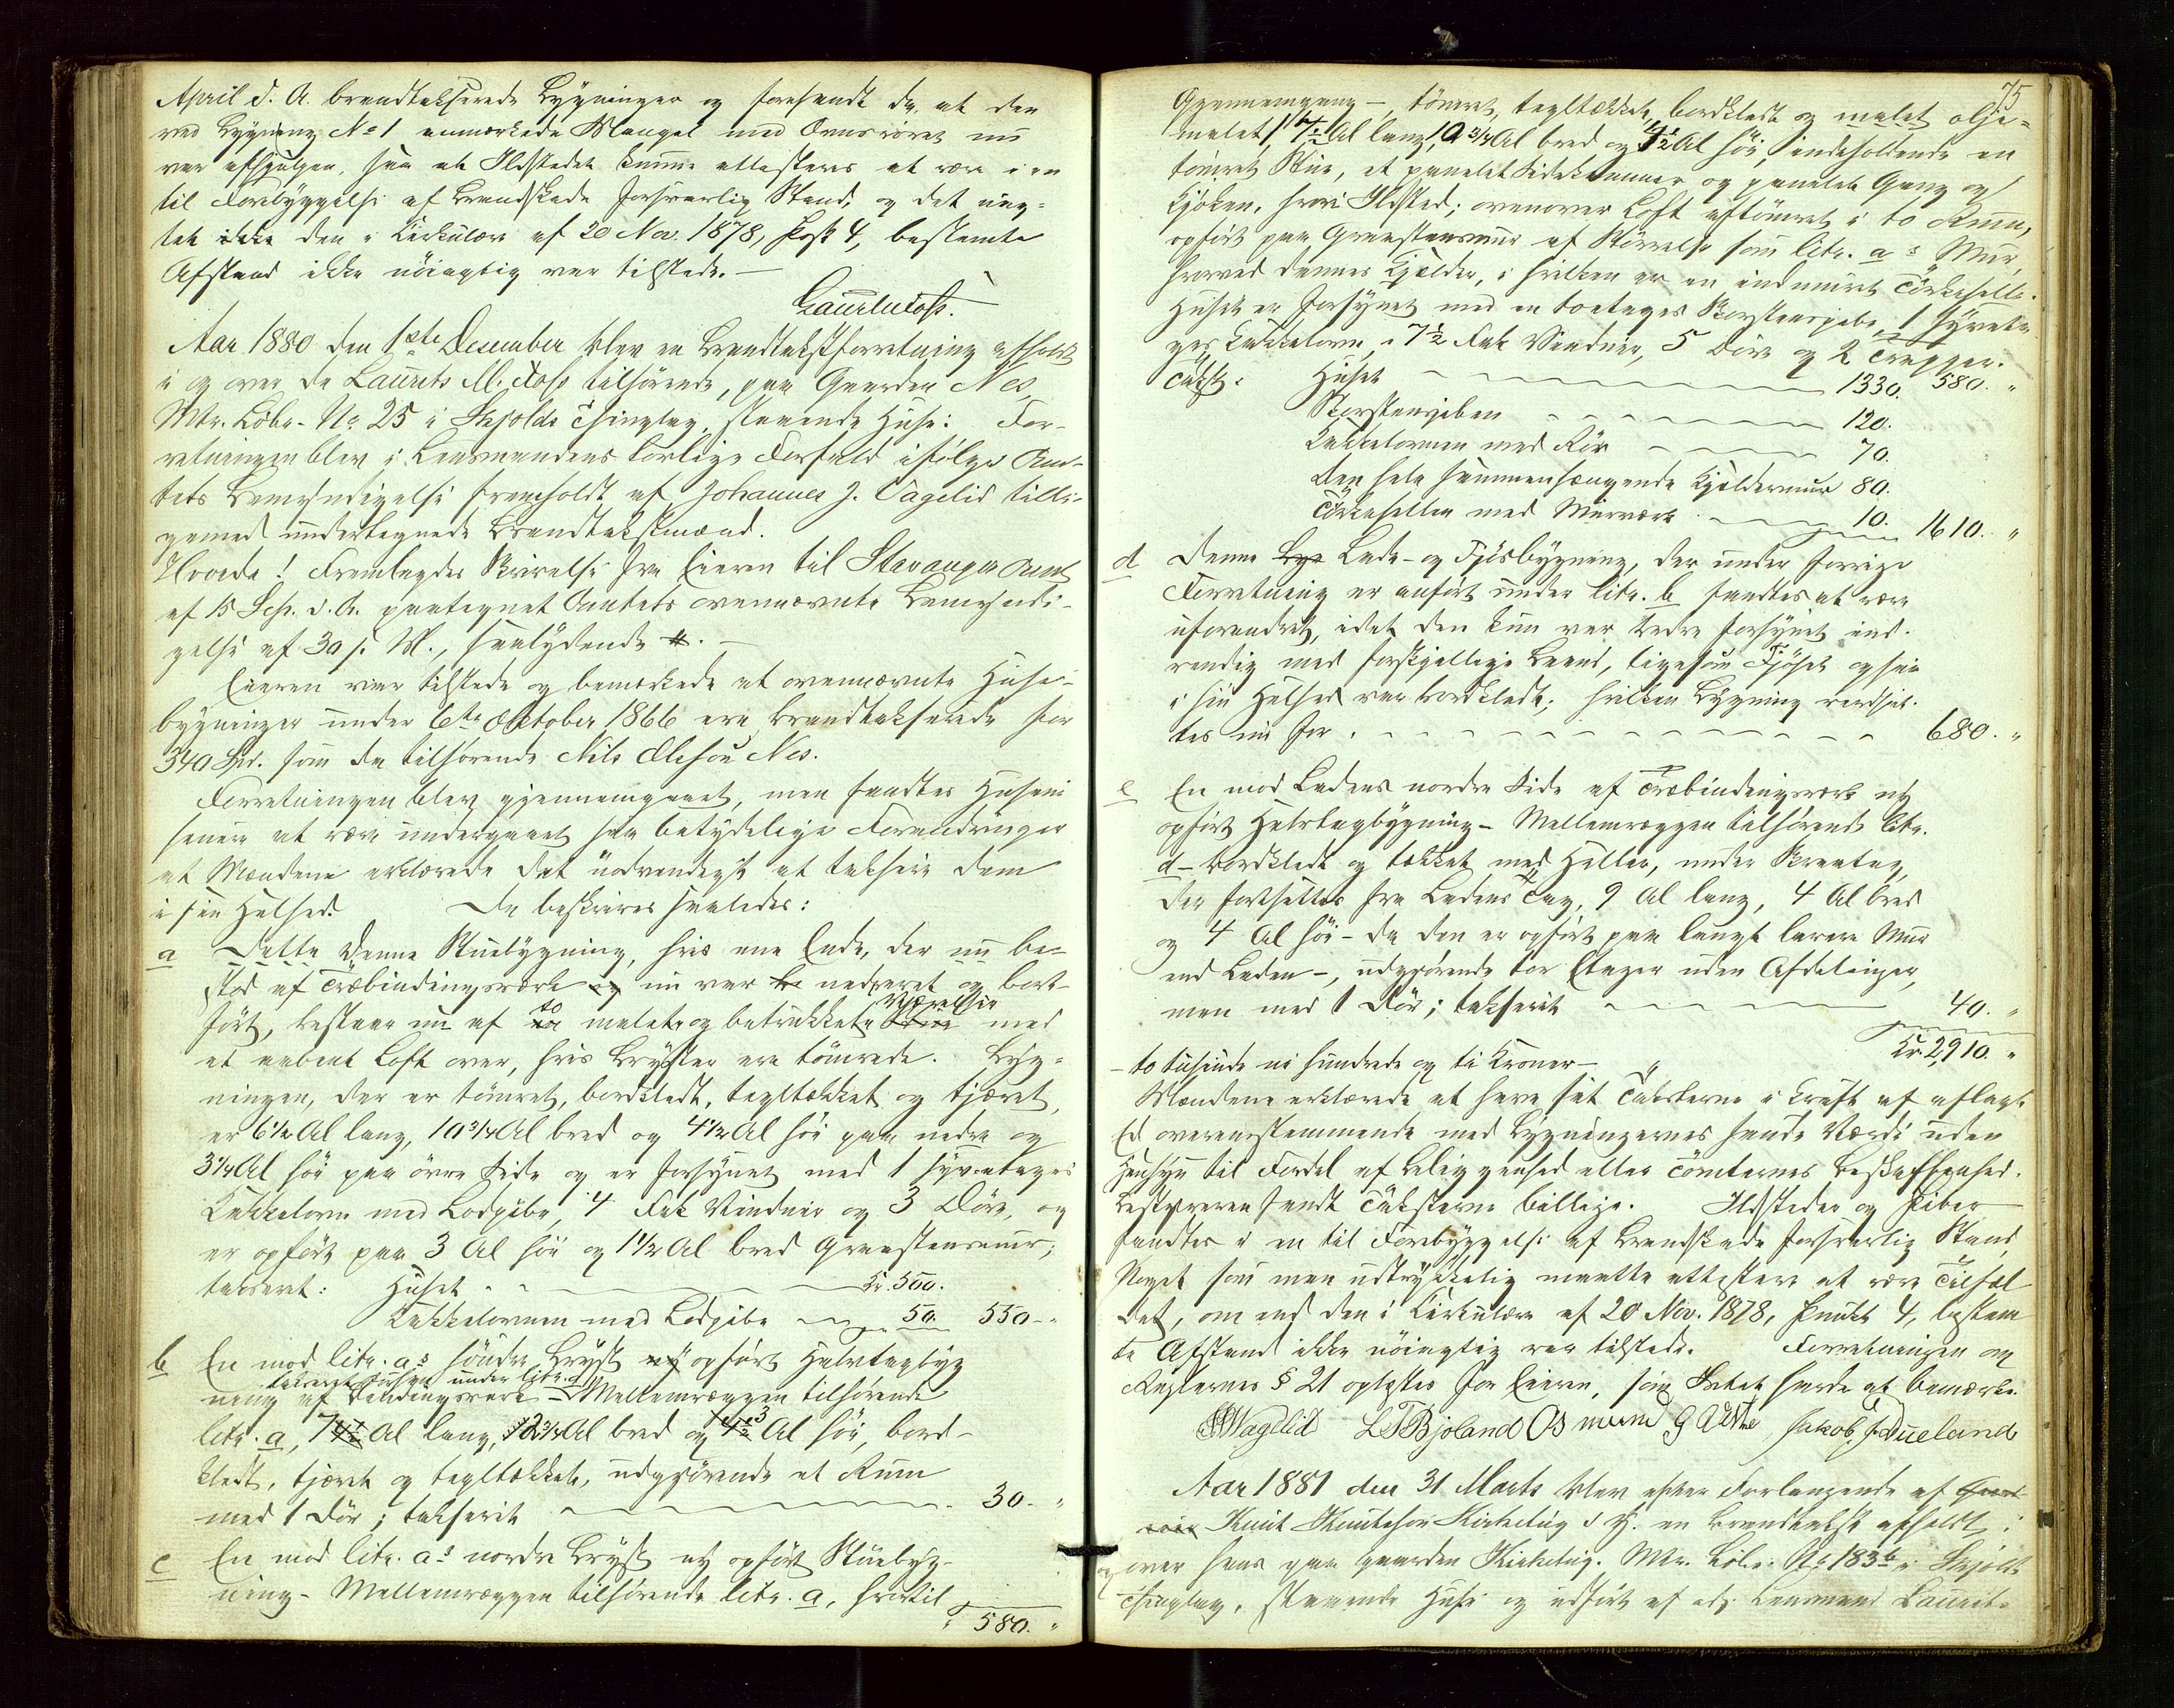 April d. A. brandtakserede Bygninger og forefandt da, at den
ved Bygning No 1 anmærkede Mangel med Ovnsröret nu
var afhjulpen, saa at Ildstedet kunne attesteres at være i en
til Forebyggelse af Brandskade forsvarlig Stand, og det uag-
tet den i Cirkulær af 20 Nov. 1878, Post 4, bestemte
Afstand ikke nöiagtig var tilstede. —
Aar 1880 den 1ste December blev en Brandtakstforretning afholdt
i og over de Laurits M. Foss tilhörende, paa Gaarden Nes,
Mtr. Löbe-No 25 i Skjolds Thinglag, staaende Huse: For-
retningen blev i Lensmandens lovlige Forfald ifölge Am-
tets Bemyndigelse fremholdt af Johannes J. Vagelid tilli-
gemed undertegnede Brandtakstmænd.
Hvorda! Fremlagdes Skrivelse fra Eieren til Stavanger Amt
af 15 Sep. d. A. paategnet Amtets ovennævnte Bemyndi-
gelse af 30 s. M., saalydende #. —
Eieren var tilstede og bemærkede at ovennævnte Huse-
bygninger under 6te Oktober 1866 ere brandtakserede for
340 Spd. som da tilhörende Nils Olesön Nes.
Forretningen blev gjennemgaaet, men fandtes Husene
senere at være undergaaet saa betydelige Forandringer
at Mændene erklærede det nödvendigt at taksere dem
i sin Helhed. De beskrives saaledes:
a Denne Stuebygning, hvis ene Ende, der nu be-
stod af Træbindingsværk nu var nedrevet og bort-
fört, bestaar nu af to malede og betrukkede Værelser med
et aabent Loft over, hvis Bryster ere tömrede. Byg-
ningen, der er tömret, bordklædt, tegltækket og tjæret,
er 6 1/2 Al lang, 10 3/4 Al bred og 4 1/2 Al höi paa nedre og
3 1/4 Al höi paa övre Side og er forsynet med 1 syvetages
Kakkelovn med Lodpibe, 4 Fak Vinduer og 3 Döre, og
er opfört paa 3 Al höi og 1 1/2 Al bred Graastensmur;
takseret: Huset Kr. 500.
Kakkelovnen med Lodpibe 50. 550 „
b En mod litr. as söndre Bryst opfört Halvtagbyg
ning af Bindingsværk — Mellemvæggen tilhörende
litr. a, 7 Al lang, 2 3/4 Al bred og 3 Al höi, bord-
klædt, tjæret og tegltækket, udgjörende et Rum
med 1 Dör; takseret 30. „
c En mod litr. as nordre Bryst ny opfört Stuebyg-
ning — Mellemvæggen tilhörende litr. a, hvortil
580. „
75
Gjennemgang —, tömret, tegltækket, bordklædt og malet olje-
malet, Al lang, 10 3/4 Al bred og 4 1/2 Al höi, indeholdende en
tömret Stue, et panelet Sidekammer og panelet Gang og
Kjöken, hvori Ildsted; ovenover Loft aftömret i to Rum,
opfört paa Graastensmur af Störrelse som litr. as Mur,
hvorved dannes Kjælder, i hvilken er en indmuret Törkehelle.
Huset er forsynet med en toetages Skorstenspibe, 1 syveta
ges Kakkelovn, 7 1/2 Fak Vinduer, 5 Döre og 2 Trapper.
580. „
Takst: Huset 1330.
Skorstenspiben 120.
Kakkelovnen med Rör 70.
den hele sammenhængende Kjældermur 80.
Törkehellen med Murværk 10. 1610. „
d Denne Lade- og Fjösbygning, der under forrige
Forretning er anfört under litr. b fandtes at være
uforandret, idet den kun var bedre forsynet ind-
vendig med forskjellige Baand, ligesom Fjöset ogsaa
i sin Helhed var bordklædt; hvilken Bygning værdsat-
tes nu for 680. „
e En mod Ladens nordre Side af Træbindingsværk ny
opfört Halvtagbygning — Mellemvæggen tilhörende litr.
d — bordklædt og tækket med Heller, under Skraatag,
der fortsættes fra Ladens Tag, 9 Al lang, 4 Al bred
og 4 Al höi — da den er opfört paa langt lavere Mur
end Laden —, udgjörende tre Etager uden Afdelinger,
men med 1 Dör; takseret 40. „
— to tusinde ni hundrede og ti Kroner — Kr. 2,910. „
Mændene erklærede at have sat Taksterne i Kraft af aflagt
Ed overensstemmende med Bygningernes sande Værdi uden
Hensyn til Fordel af Beliggenhed eller Tömternes Beskaffenhed.
Bestyreren fandt Taksterne billige. Ildsteder og Piber
fandtes i en til Forebyggelse af Brandskade forsvarlig Stand,
Noget som man udtrykkelig maatte attestere at være Tilfæl
det, om end den i Cirkulære af 20 Nov. 1878, Punkt 4, bestem
te Afstand ikke nöiagtig var tilstede. Forretningen og
Reglernes § 21 oplæstes for Eieren, som Intet havde at bemærke.
JJVagelid LTBjoland Osmund G Jakob J Dueland
Aar 1881 den 31 Marts blev efter Forlangende af
Knut Knutesön Kirketeig d. Y. en Brandtakst afholdt i
og over hans paa Gaarden Kirketeig, Mtr. Löbe-No 183b i Skjolds
Thinglag, staaende Huse og udfört af Lensmand Laurits